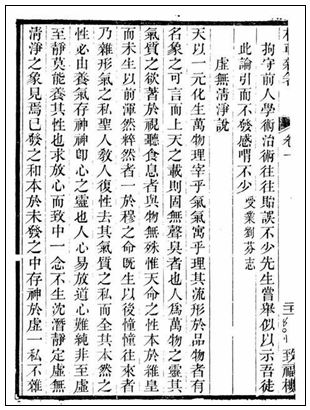 卷一
致福樓
拘守前人學術治術往往貽誤不少先生嘗舉似以示吾徒
此論引而不發感喟不少 受業劉芬志
虛無清淨說
天以一元化生萬物理宰乎氣氣寓乎理其流形於品物者有
名象之可言而上天之載則固無聲臭者也人爲萬物之靈其
氣質之欲著於視聽食息者與物無殊惟天命之性本於維皇
而未生以前渾然粹然者一於穆之命既生以後憧憧往來者
乃雜形氣之私聖人教人復性去其氣質之私而全其本然之
性必由養氣存神神卽心之靈也人心易放道心難純非至虛
至靜莫能養其性也求放心而致中一念不生沈潛靜定虛無
清淨之象見焉已發之和本於未發之中存神於虛一私不雜